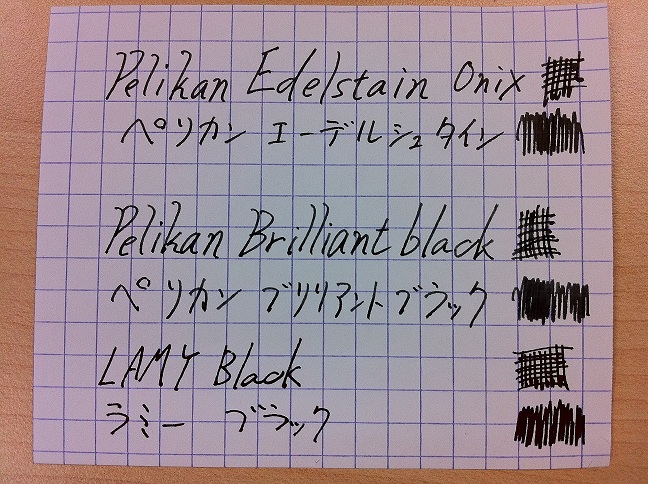 Pelikan Edelstain Onix
ペリカン エーデルシュタイン
Pelikan Brilliant black
ペリカン ブリリアントブラック
LAMY Black
ラミー ブラック